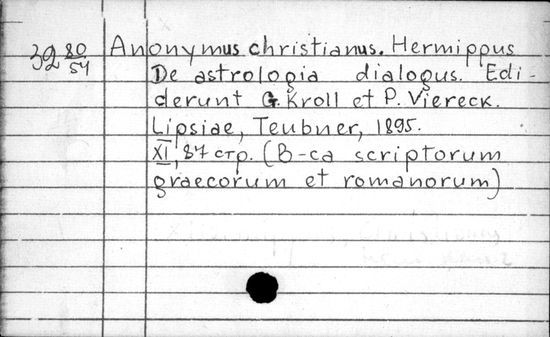 39 80/54 Anonymus christianus. Hermippus
De astrologia dialogus. Edi-
derunt G. Kroll et P. Viereck.
Lipsiae, Teubner, 1895.
XI, 87 стр. (B-ca scriptorum
graecorum et romanorum)